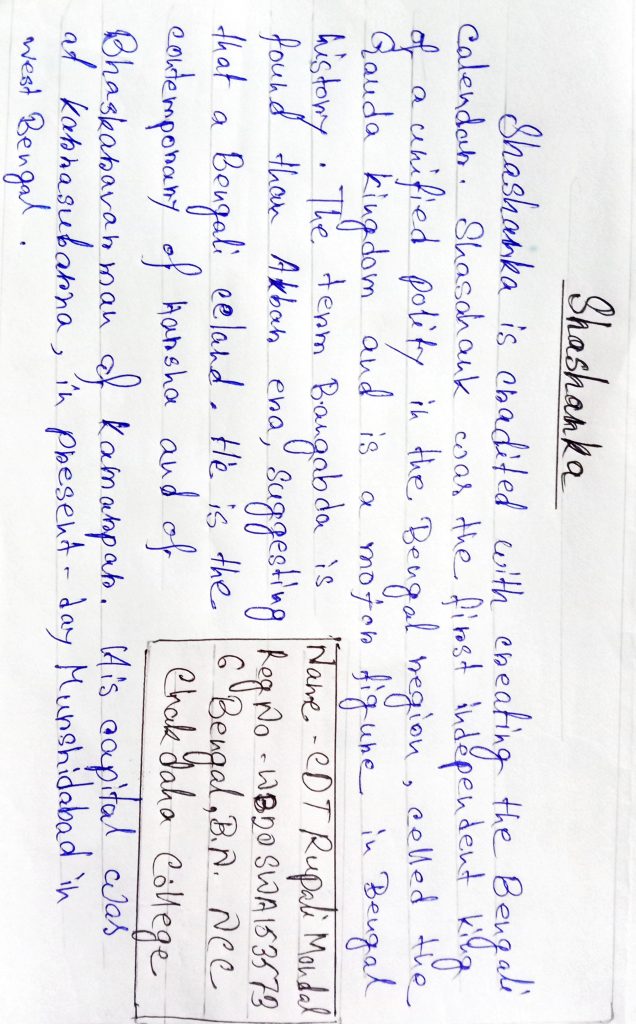 Shashanka
Shashanka is cradited with creating the Bengali
Calendar. Shasahank was the first independent king
of a unified polity in the Bengal region, celled the
Gauda kingdom and is a mojor figure in Bengal
history. The term Bangabda is
found than Akbar era, suggesting
that a Bengali celand. He is the
contemporary of Harsha and of
Bhaskaravarman of Kamarpar. His capital was
at Karnasubarna, in present-day Murshidabad in
west Bengal.
Name - CDT Rupali Mondal
Reg No - WB20SWA153573
6 Bengal, B.N. NCC
Chakdaha College